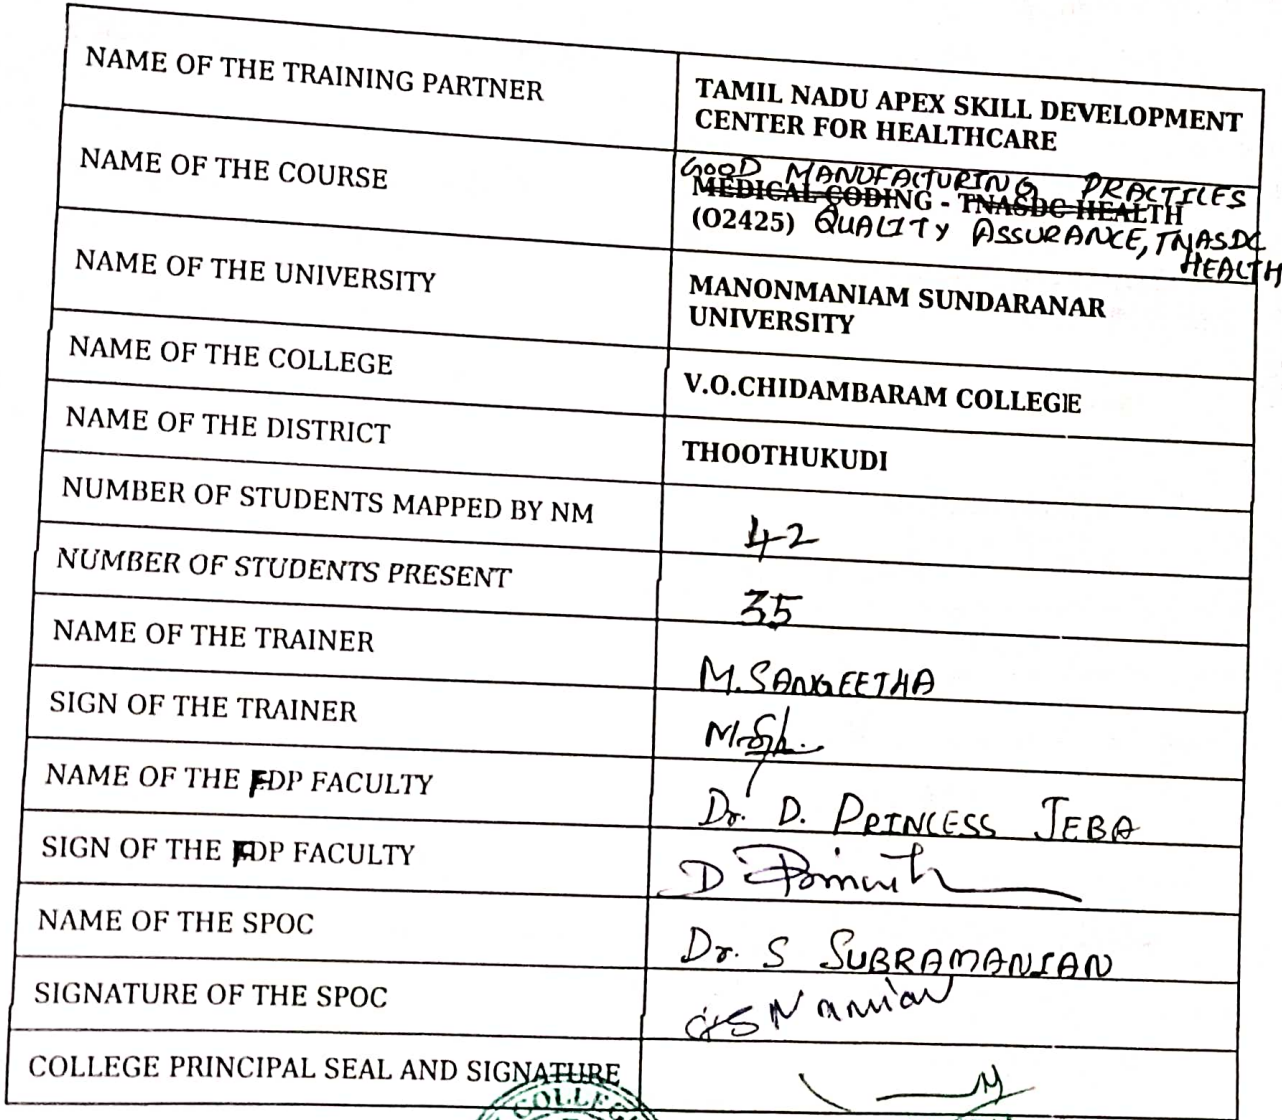 NAME OF THE TRAINING PARTNER
TAMIL NADU APEX SKILL DEVELOPMENT
CENTER FOR HEALTHCARE
NAME OF THE COURSE
GOOD MANUFACTURING PRACTICES
MEDICAL CODING - TNASDC HEALTH
(O2425) QUALITY ASSURANCE, TNASDC
HEALTH
NAME OF THE UNIVERSITY
MANONMANIAM SUNDARANAR
UNIVERSITY
NAME OF THE COLLEGE
V.O.CHIDAMBARAM COLLEGE
NAME OF THE DISTRICT
THOOTHUKUDI
NUMBER OF STUDENTS MAPPED BY NM
42
NUMBER OF STUDENTS PRESENT
35
NAME OF THE TRAINER
M.SANGEETHA
SIGN OF THE TRAINER
NAME OF THE FDP FACULTY
Dr. D. PRINCESS JEBA
SIGN OF THE FDP FACULTY
NAME OF THE SPOC
Dr. S SUBRAMANIAN
SIGNATURE OF THE SPOC
COLLEGE PRINCIPAL SEAL AND SIGNATURE
COLLEGE